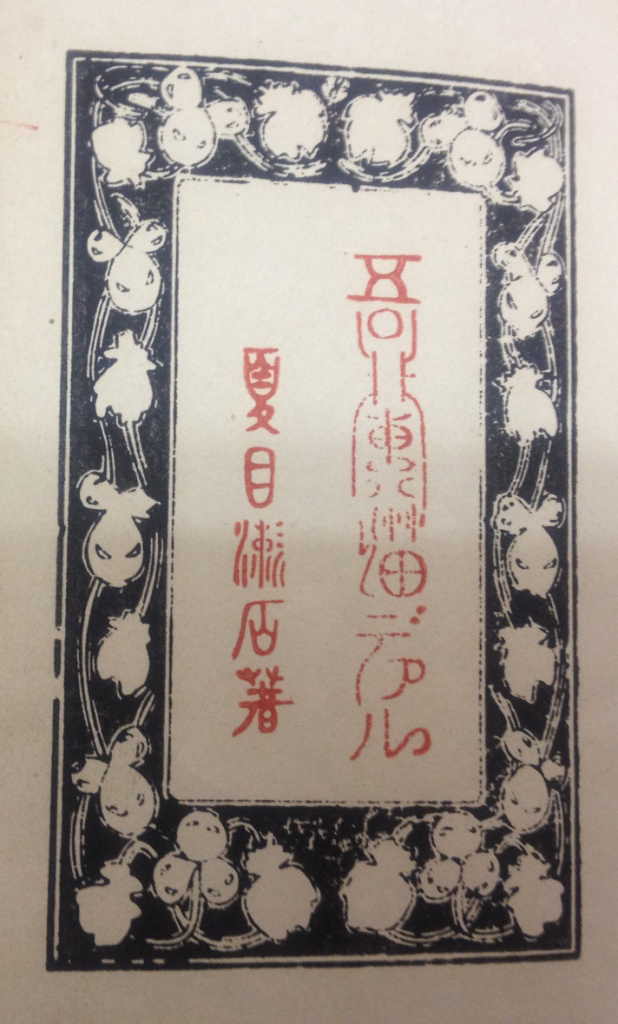 吾輩ハ猫デアル
夏目漱石著